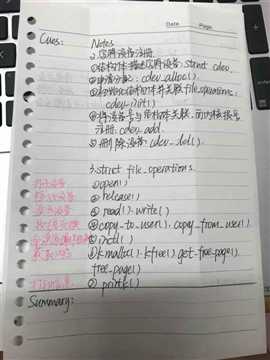 Date Page
Cues: Notes
2.字符设备注册
①结构体描述字符设备 struct cdev
②申请分配: cdev_alloc()
③初始化结构体并关联file_operations:
cdev_init()
④将设备号与结构体关联,向内核报号
注册 cdev_add
⑤删除设备 cdev_del()
3.struct file_operations
打开设备 ①open()
释放设备 ②release()
读写设备 ③read() write()
④copy_to_user() copy_from_user()
⑤ioctl()
⑥kmalloc() kfree() get_free_page()
free_page()
打印信息 ⑦printk()
Summary: